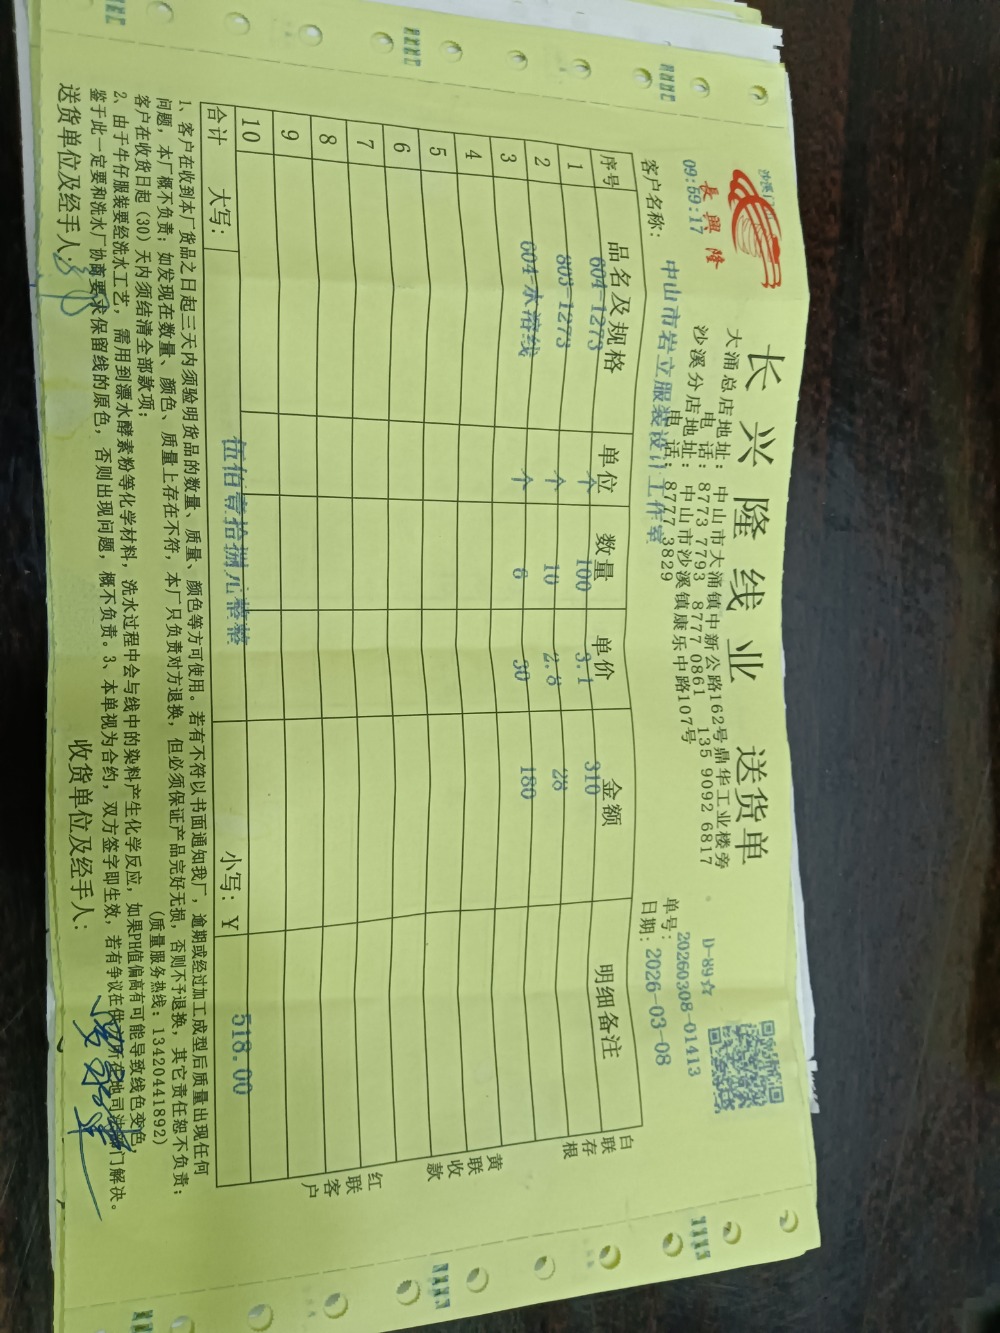 长兴隆线业 送货单
沙溪门
長興隆
09:59:17
大涌总店地址：中山市大涌镇中新公路162号鼎华工业楼旁
电 话：8773 7793 8777 0861 135 9092 6817
沙溪分店地址：中山市沙溪镇康乐中路107号
电 话：8777 3829
D-89☆
单号：20260308-01413
日期：2026-03-08
客户名称：中山市岩立服装设计工作室
序号 品名及规格 单位 数量 单价 金额 明细备注
1 604-1273 个 100 3.1 310
2 803-1273 个 10 2.8 28
3 604-水溶线 个 6 30 180
4
5
6
7
8
9
10
合计 大写：伍佰壹拾捌元整整 小写：￥ 518.00
白联存根
黄联收款
红联客户
1、客户在收到本厂货品之日起三天内须验明货品的数量、质量、颜色等方可使用。若有不符以书面通知我厂，逾期或经过加工成型后质量出现任何
问题，本厂概不负责；如发现在数量、颜色、质量上存在不符，本厂只负责对方退换，但必须保证产品完好无损，否则不予退换，其它责任恕不负责；
客户在收货日起（30）天内须结清全部款项； （质量服务热线：13420441892）
2、由于牛仔服装要经洗水工艺，需用到漂水酵素粉等化学材料，洗水过程中会与线中的染料产生化学反应，如果PH值偏高有可能导致线色变色
鉴于此一定要和洗水厂协商要求保留线的原色，否则出现问题，概不负责。3、本单视为合约，双方签字即生效，若有争议在供方所在地司法部门解决。
送货单位及经手人： 收货单位及经手人：